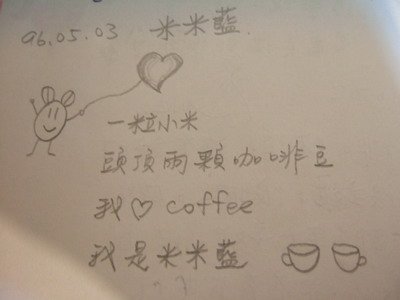 96.05.03 米米藍
一粒小米
頭頂兩顆咖啡豆
我♡coffee
我是米米藍